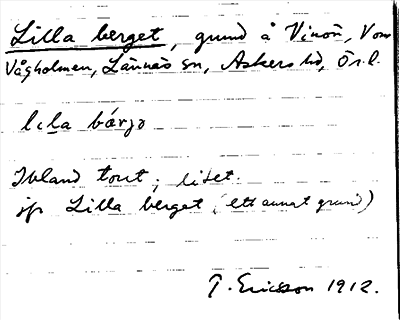 Lilla berget, grund å Vinön, Von
Vågholmen, Lännäs sn, Askers hd, Ör.l.
lıla bárjə
Ibland torrt; litet.
jfr Lilla berget (ett annat grund)
T. Ericsson 1912.